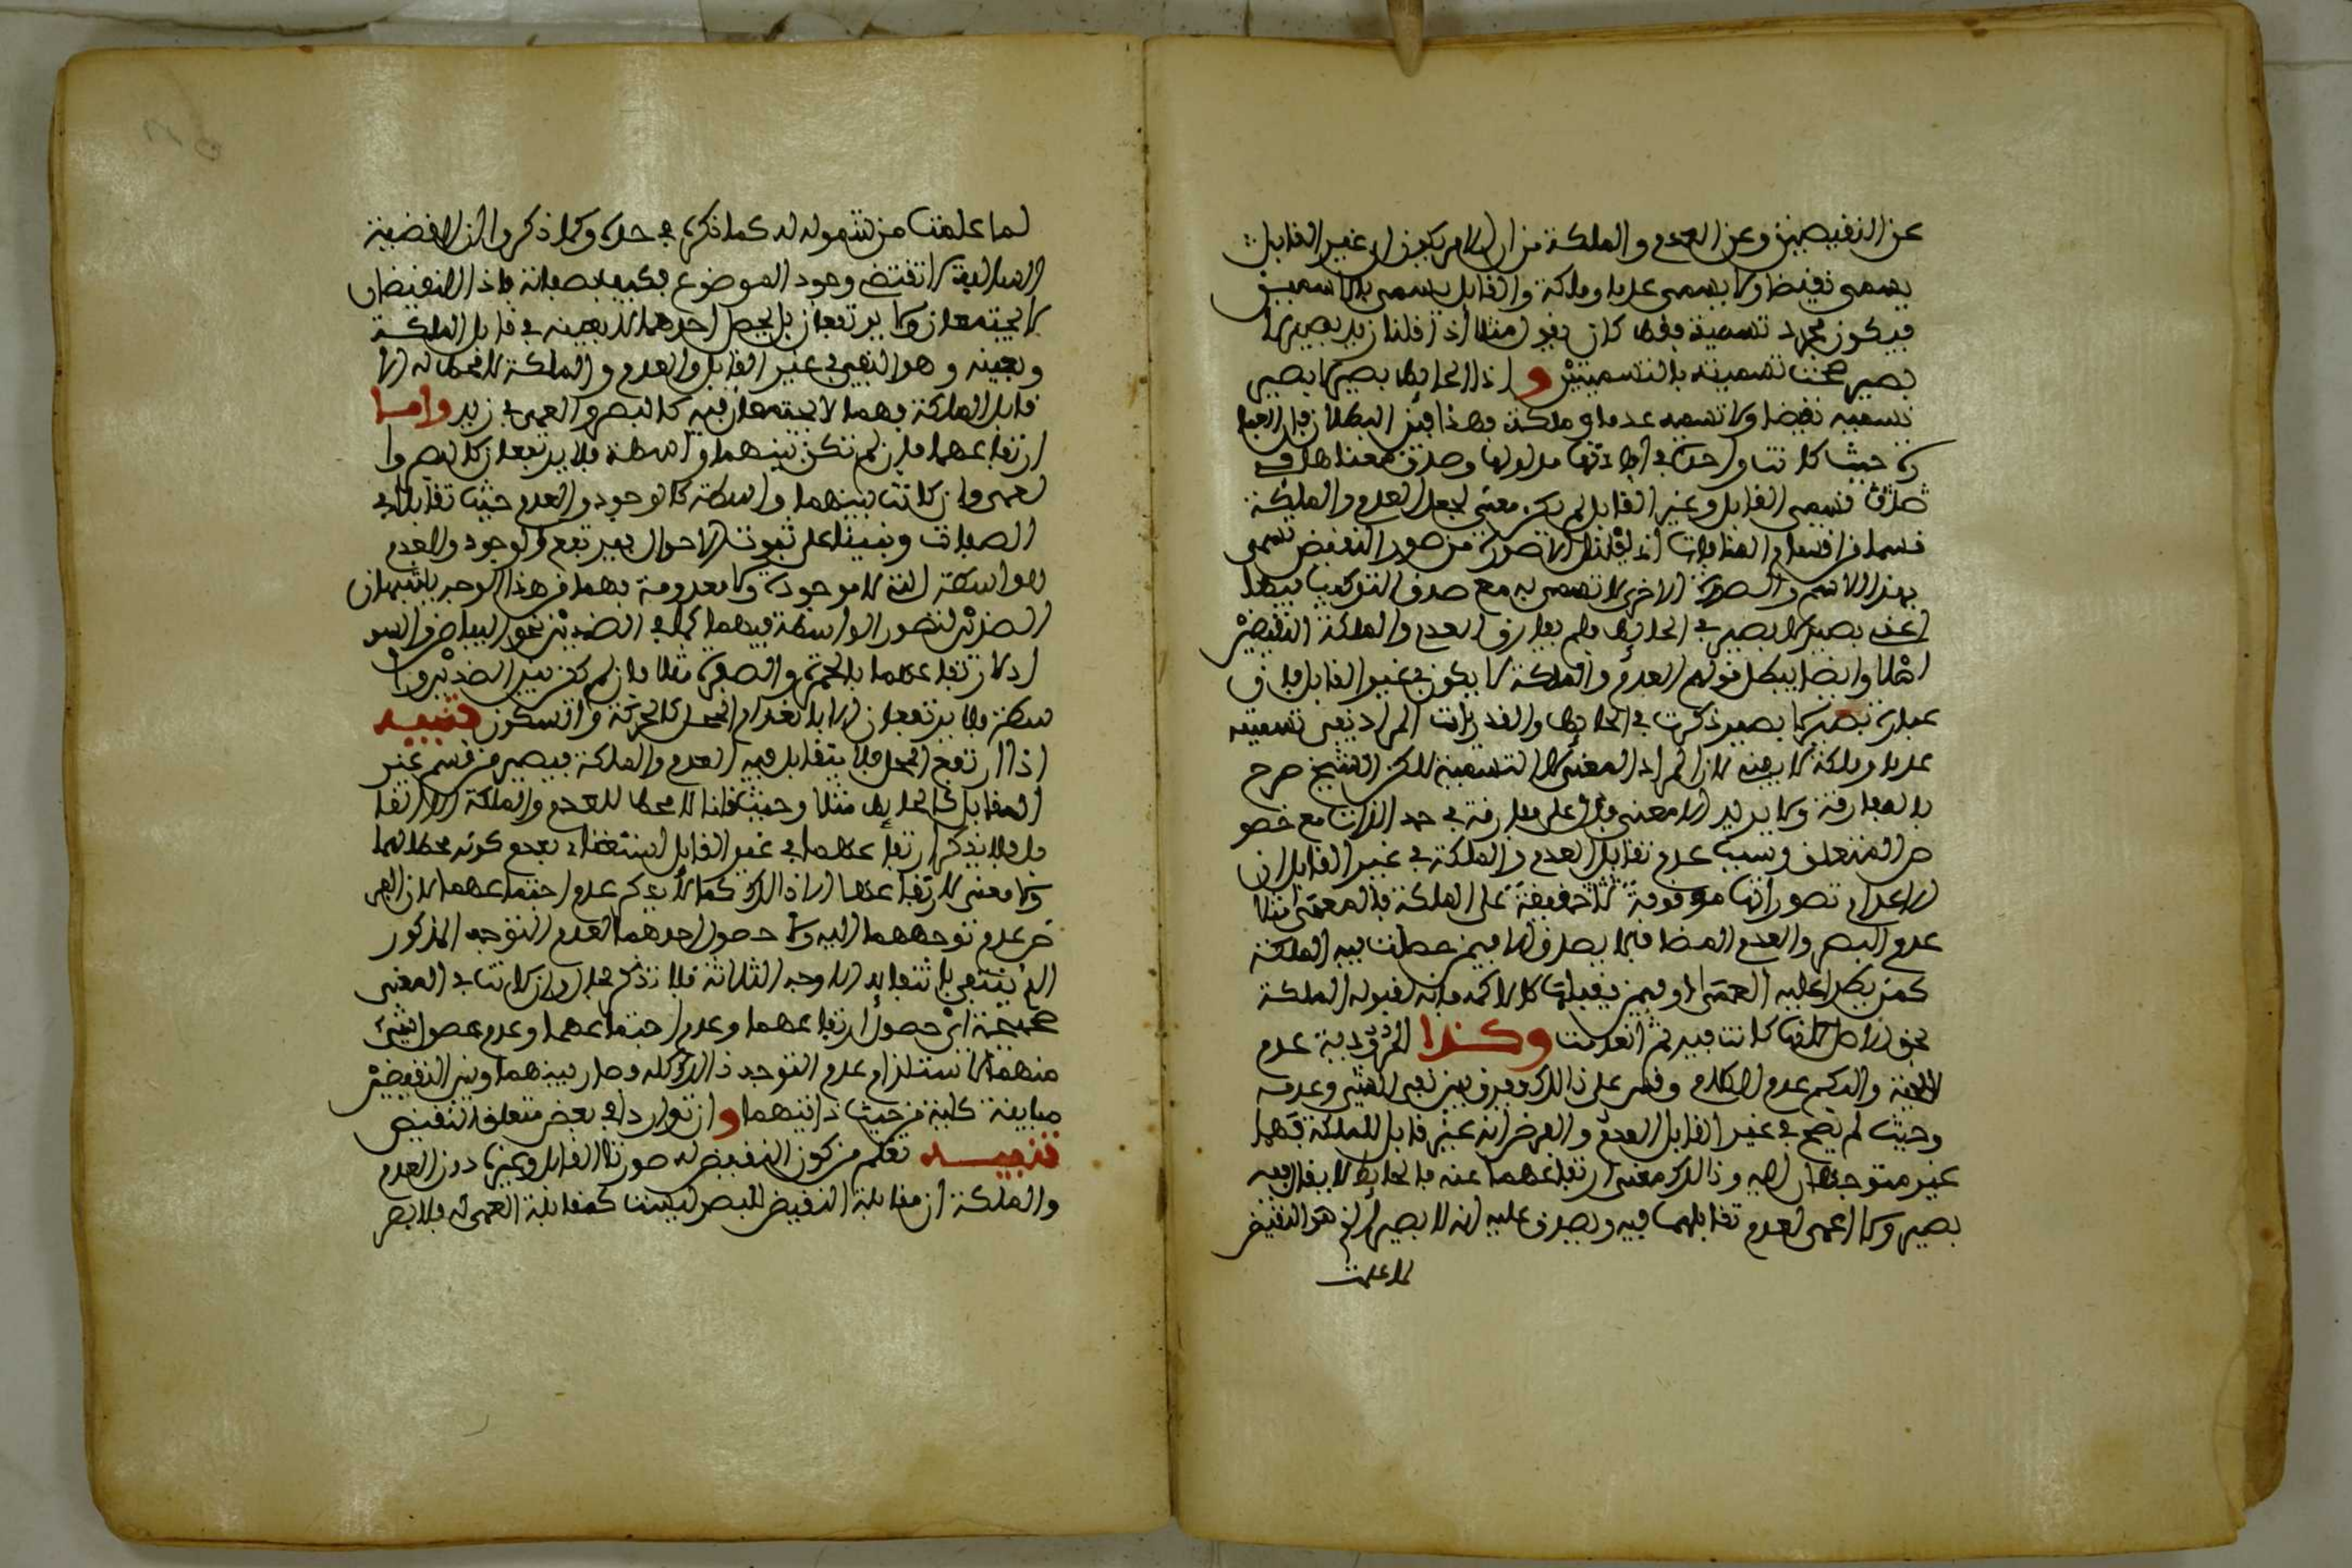 عن النقيضين وعن العدم والملكة من ان الامر يكون ان غير القابل
يسمى نقيضا ولا يسمى عدما وملكة والقابل يسمى بالاسمين
فيكون مجرد تسمية فقط كان نقول مثلا اذا قلنا زيد بصير لا
بصير صحت تسميته بالتسميتين واذا الحائط بصير لا بصير
نسميه نقيضا ولا نسميه عدما وملكة وهذا بين البطلان
حيث كانتا واحدة في مدلولها وصدق معناها في
صدق مسمى القابل وغير القابل لم يكن معنى لجعل العدم والملكة
قسما من اقسام المنافات اذ الا صورة من صور النقيض تسمى
بهذا الاسم والصورة الاخرى لا تسمى به مع صدق التركيب
اعني بصير لا بصير في الحائط فلم يفارق العدم والملكة النقيضين
اصلا وايضا يبطل قولهم العدم والملكة لا يكون في غير القابل فان
عبارة بصير لا بصير ذكرت في الحائط والقدران المراد نفي تسميته
عدما وملكة لا يفيد لان المراد المعنى لا التسمية لاكن الشيخ صرح
بالمفارقة ولا يريد الا معنى على مفارقة في حد الذات مع خصو
ص المتعلق وسبب عدم تقابل العدم والملكة في غير القابل ان
الاعدام تصوراتها موقوفة على الملكة فالعمى مثلا
عدم البصر والعدم المضاف لا يصدق الا فيمن حصلت فيه الملكة
كمن يطرا عليه العمى او فيمن يقبلها كالاكمه فانه لقبوله الملكة
كانت فيه ثم انعدمت وكذا عدم
اللحية والبكم عدم الكلام وقس على ذالك وفرق بين نفي الشيء وعدمه
وحيث لم يصح في غير القابل العدم والفرض انه غير قابل للملكة فهما
غير متوجهان اليه وذالك معنى ارتفاعهما عنه فالحائط لا يقال فيه
بصير ولا اعمى لعدم تقابلهما فيه ويصدق عليه انه لا بصير الذي هو النقيض
لما علمت
لما علمت من شموله له كما ذكرنا في حده وكما ذكروا ان القضية
السالبة لا تقتضي وجود الموضوع فكيف بصفاته فاذا النقيضان
لا يجتمعان ولا يرتفعان بل يحصل احدهما لا بعينه في قابل الملكة
وبعينه وهو النفي في غير القابل والعدم والملكة لا محل له الا
قابل الملكة فهما لا يجتمعان فيه كالبصر والعمى في زيد واما
ارتفاعهما فان لم تكن بينهما واسطة فلا يرتفعان كالبصر وا
لعمى وان كانت بينهما واسطة كالوجود والعدم حيث تقابلا في
الصفات وبنينا على ثبوت الاحوال فيرتفع الوجود والعدم
لواسطة التي لا موجودة ولا معدومة فهما من هذا الوجه يشبهان
الضدين لتصور الواسطة فيهما كما في الضدين نحو البياض والسو
اد لارتفاعهما بالحمرة والصفرة مثلا فان لم تكن بين الضدين وا
سطة فلا يرتفعان الا بانعدام المحل كالحركة والسكون تنبيه
اذا ارتفع المحل فلا يتقابل فيه العدم والملكة فيصير من قسم غير
المقابل كالحائط مثلا وحيث قلنا لا محل للعدم والملكة الا القا
بل فلا يذكر ارتفاعهما في غير القابل استغناء بعدم كونه محلا لهما
ولا معنى لارتفاعهما الا ذالك كما لا يذكر عدم اجتماعهما لان الفر
ض عدم توجههما اليه ولا حصول احدهما لعدم التوجه المذكور
الذي ينتفي بانتفائه الاوجه الثلاثة فلا تذكر وان كانت في المعنى
صحيحة اي حصول ارتفاعهما وعدم اجتماعهما وعدم حصول شيء
منهما لاستلزام عدم التوجه ذالك كله وصار بينهما وبين النقيضين
مباينة كلية من حيث ذاتيهما وان تواردا في بعض متعلق النقيض
تنبيه تعلم من كون النقيض له صورتا القابل وغيره دون العدم
والملكة ان مقابلة النقيض للبصر ليست كمقابلة العمى له فلا بصر